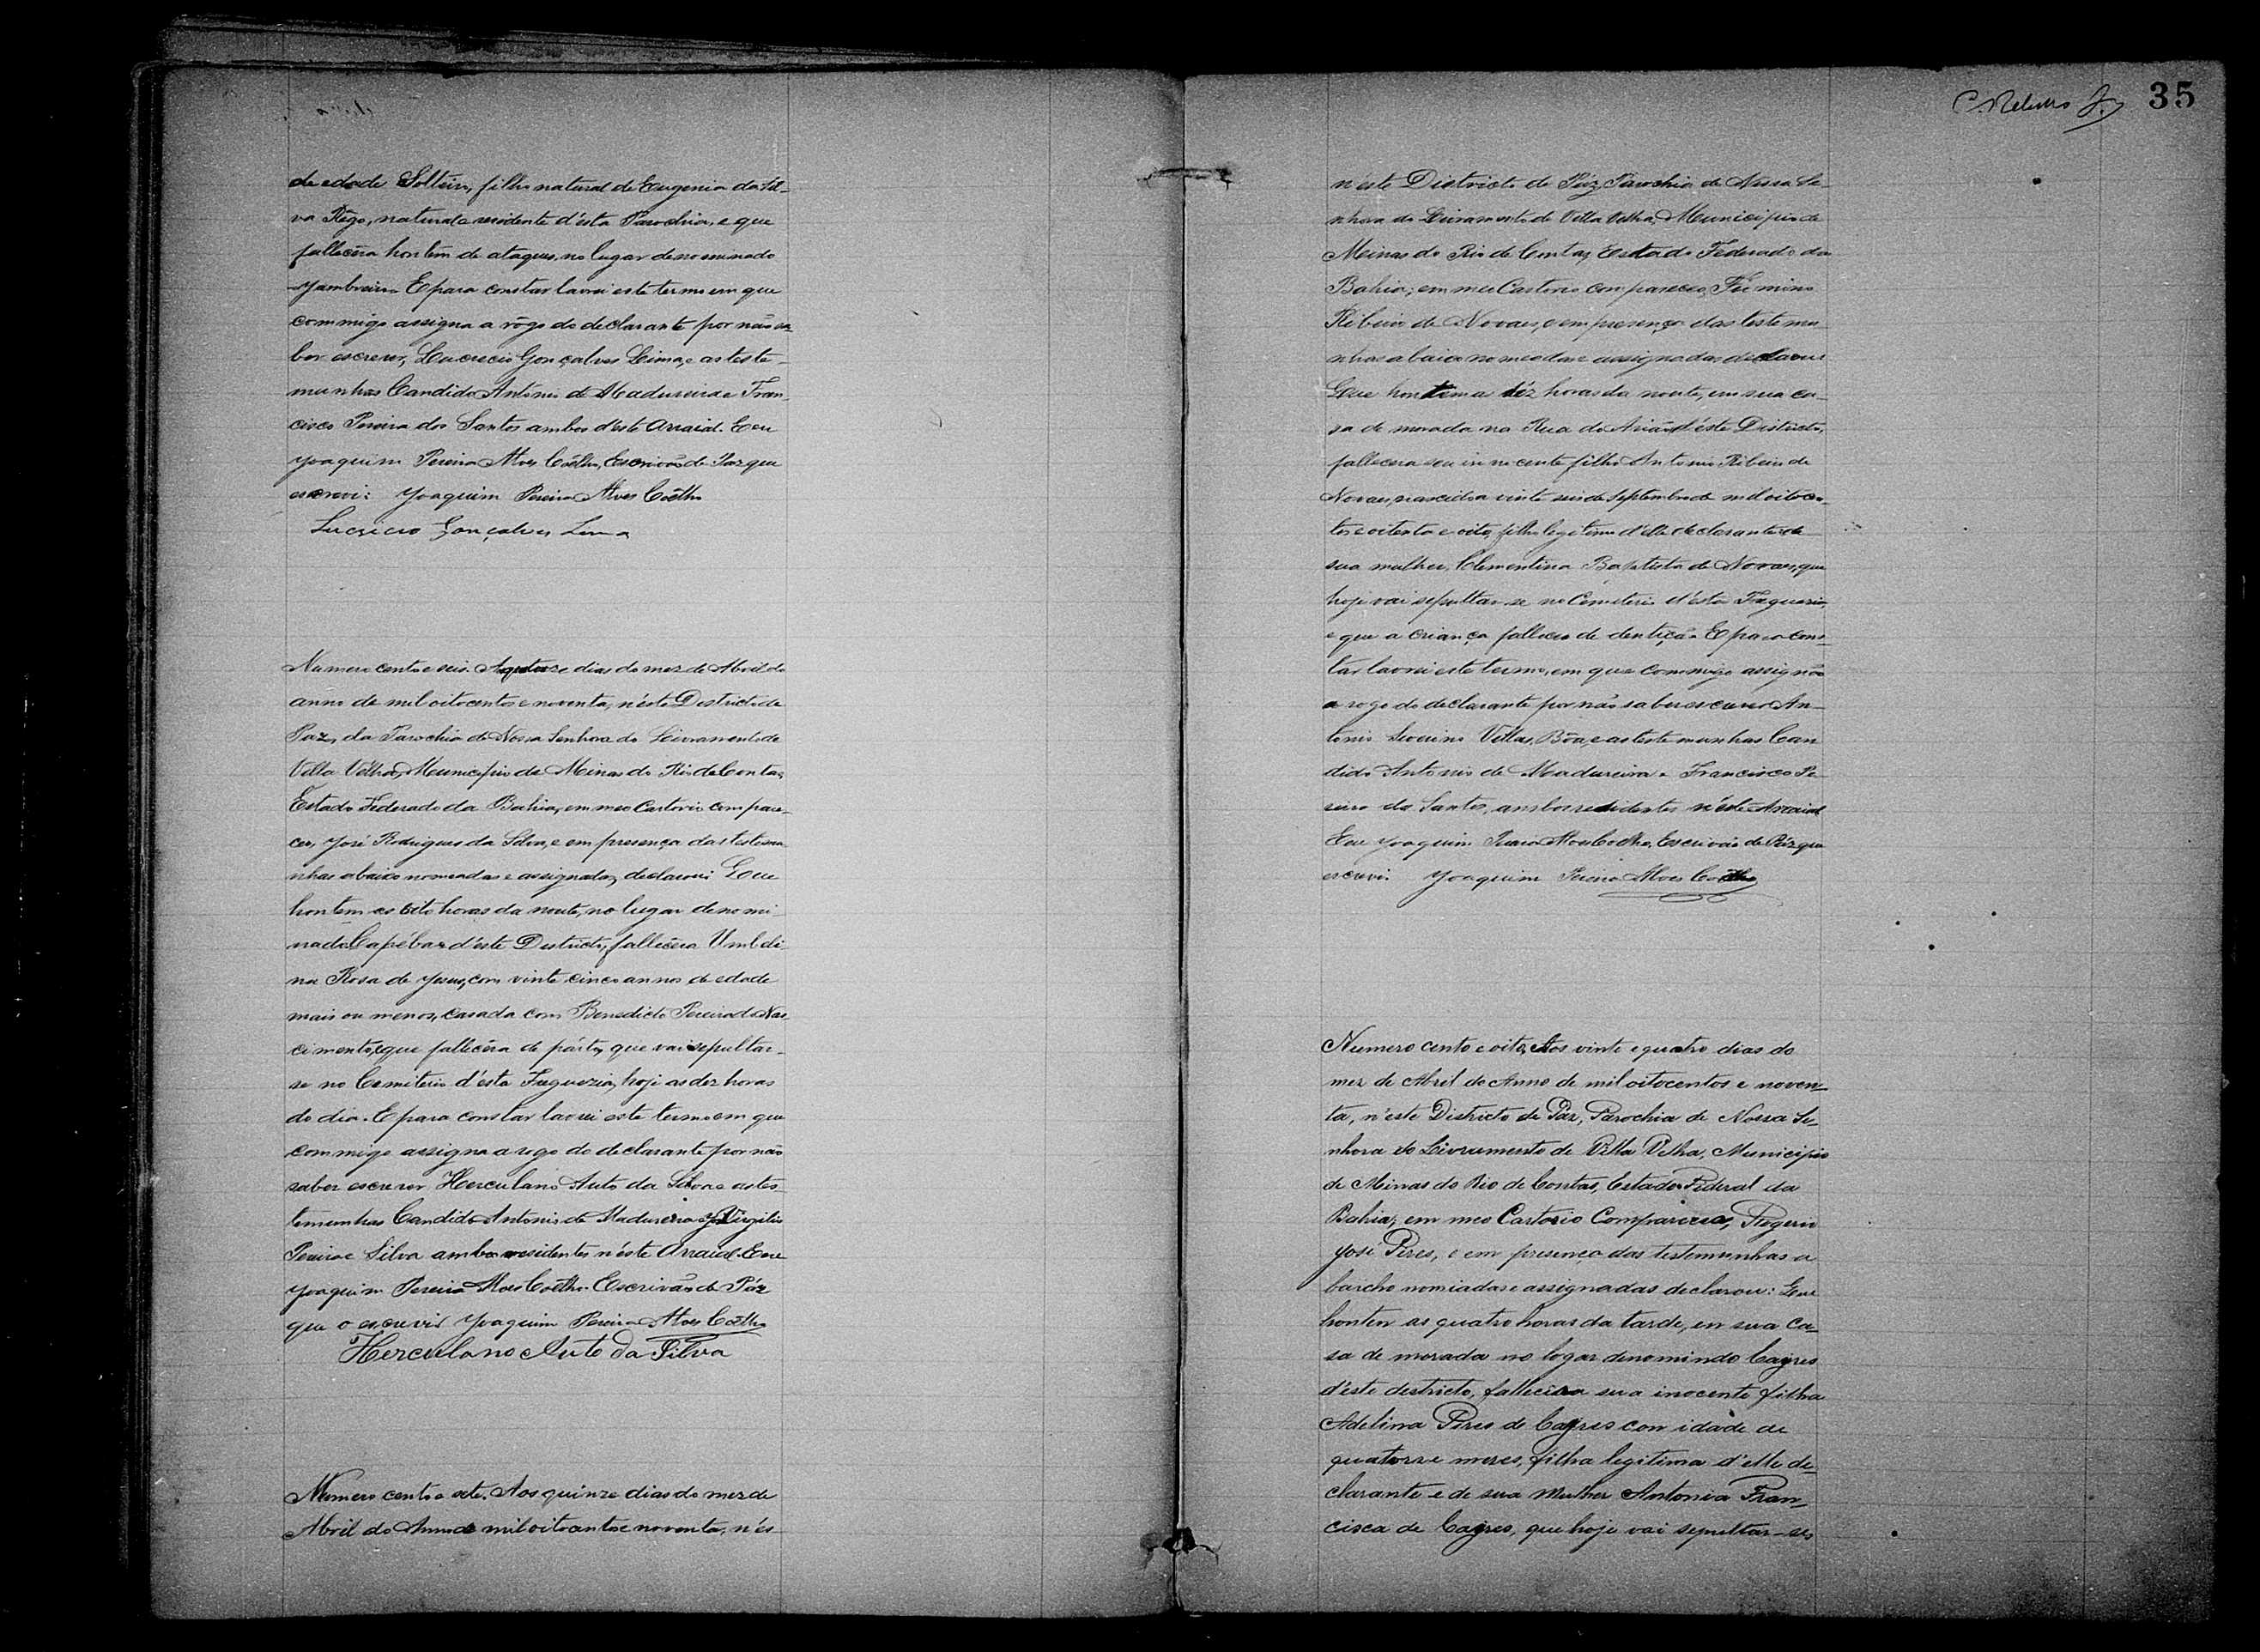 de edade Solteiro, filho natural de Eugenia da Sil-
va Rêgo, natural e residente d'ésta Parochia, e que
fallecêra hontem de ataques, no lugar denominado
E para constar lavrei este termo em que
commigo assigna a rôgo do declarante por não sa-
ber escrever, Lucrecio Gonçalves Lima, e as teste-
munhas Candido Antonio de Madureira e Fran-
cisco Pereira dos Santos ambos d'este Arraial. E eu
Joaquim Pereira Alves Coêlho, Escrivão de Paz que
escrevi: Joaquim Pereira Alves Coêlho
Lucricio Gonçalves Lima
Numero cento e seis. Aos quatorze dias do mez de Abril do
anno de mil oitocentos e noventa, n'éste Districto de
Paz, da Parochia de Nossa Senhora do Livramento de
Villa Velha, Municipio de Minas do Rio de Contas,
Estado Federado da Bahia, em meo Cartorio compare-
ceu, José Rodrigues da Silva, e em presença das testemu-
nhas abaixo nomeadas e assignadas, declarou: Que
hontem as oito horas da noute, no lugar denomi-
nado d'este Districto, fallecêra Umbeli-
na Rosa de Jesus, com vinte cinco annos de edade
mais ou menos, casada com Benedicto Pereira do Nas-
cimento, e que fallecêra de párto, que vai sepultar-
se no Cemiterio d'ésta Freguezia, hoje as dez horas
do dia. E para constar lavrei este termo em que
commigo assigna a rogo do declarante por não
saber escrever Herculano Auto da Silva e as tes-
temunhas Candido Antonio de Madureira e Virgilio
Pereira e Silva ambos residentes n'éste Arraial. E eu
Joaquim Pereira Alves Coêlho Escrivão de Páz
que o escrevi Joaquim Pereira Alves Coêlho
Herculano Auto da Silva
Numero cento e sete. Aos quinze dias do mez de
Abril do Anno de mil oitocentos e noventa, n'és
35
n'éste Districto de Páz, Parochia de Nossa Se-
nhora do Livramento de Villa Velha, Municipio de
Minas do Rio de Contas, Estado Federado da
Bahia; em meu Cartorio compareceo, Firmino
Ribeiro de Novaes, e em presença das testemu-
nhas abaixo nomeadas e assignadas, declarou:
Que hontem as déz horas da noute, em sua ca-
sa de morada na Rua do d'éste Districto,
fallecera seu innocente filho Antonio Ribeiro de
Novaes, nascido a vinte seis de Septembro de mil oitocen-
tos e oitenta e oito, filho legitimo d'elle declarante e de
sua mulher, Clementina Baptista de Novaes, que
hoje vai sepultar-se no Cemiterio d'ésta Freguezia,
e que a criança falleceo de dentição. E para cons-
tar lavrei este termo, em que commigo assignão
a rogo do declarante por não saber escrever An-
tonio Severino Villas Bôas, e as testemunhas Can
dido Antonio de Madureira e Francisco Pe-
reira dos Santos, ambos residentes n'éste Arraial
E eu Joaquim Pereira Alves Coêlho, Escrivão de Páz que
escrevi. Joaquim Pereira Alves Coêlho
Numero cento e oito, Aos vinte e quatro dias do
mez de Abril do Anno de mil oitocentos e noven-
ta, n'este Districto de Páz, Parochia de Nossa Se-
nhora do Livramento de Villa Velha, Municipio
de Minas do Rio de Contas, Estado Federal da
Bahia, em meo Cartorio Compareceo, Rogerio
José Pires, e em presença das testemunhas a
barcho nomiadas e assignadas declarou: Que
honten as quatro horas da tarde, en sua ca-
sa de morada no logar denomindo Cayres
d'éste destricto, fallecêra sua inocente filha
Adelina Pires de Cayres con idade de
quatorze mezes, filha legitima d'elle de-
clarante e de sua Mulher Antonia Fran-
cisca de Cayres, que hoje vai sepultar-se